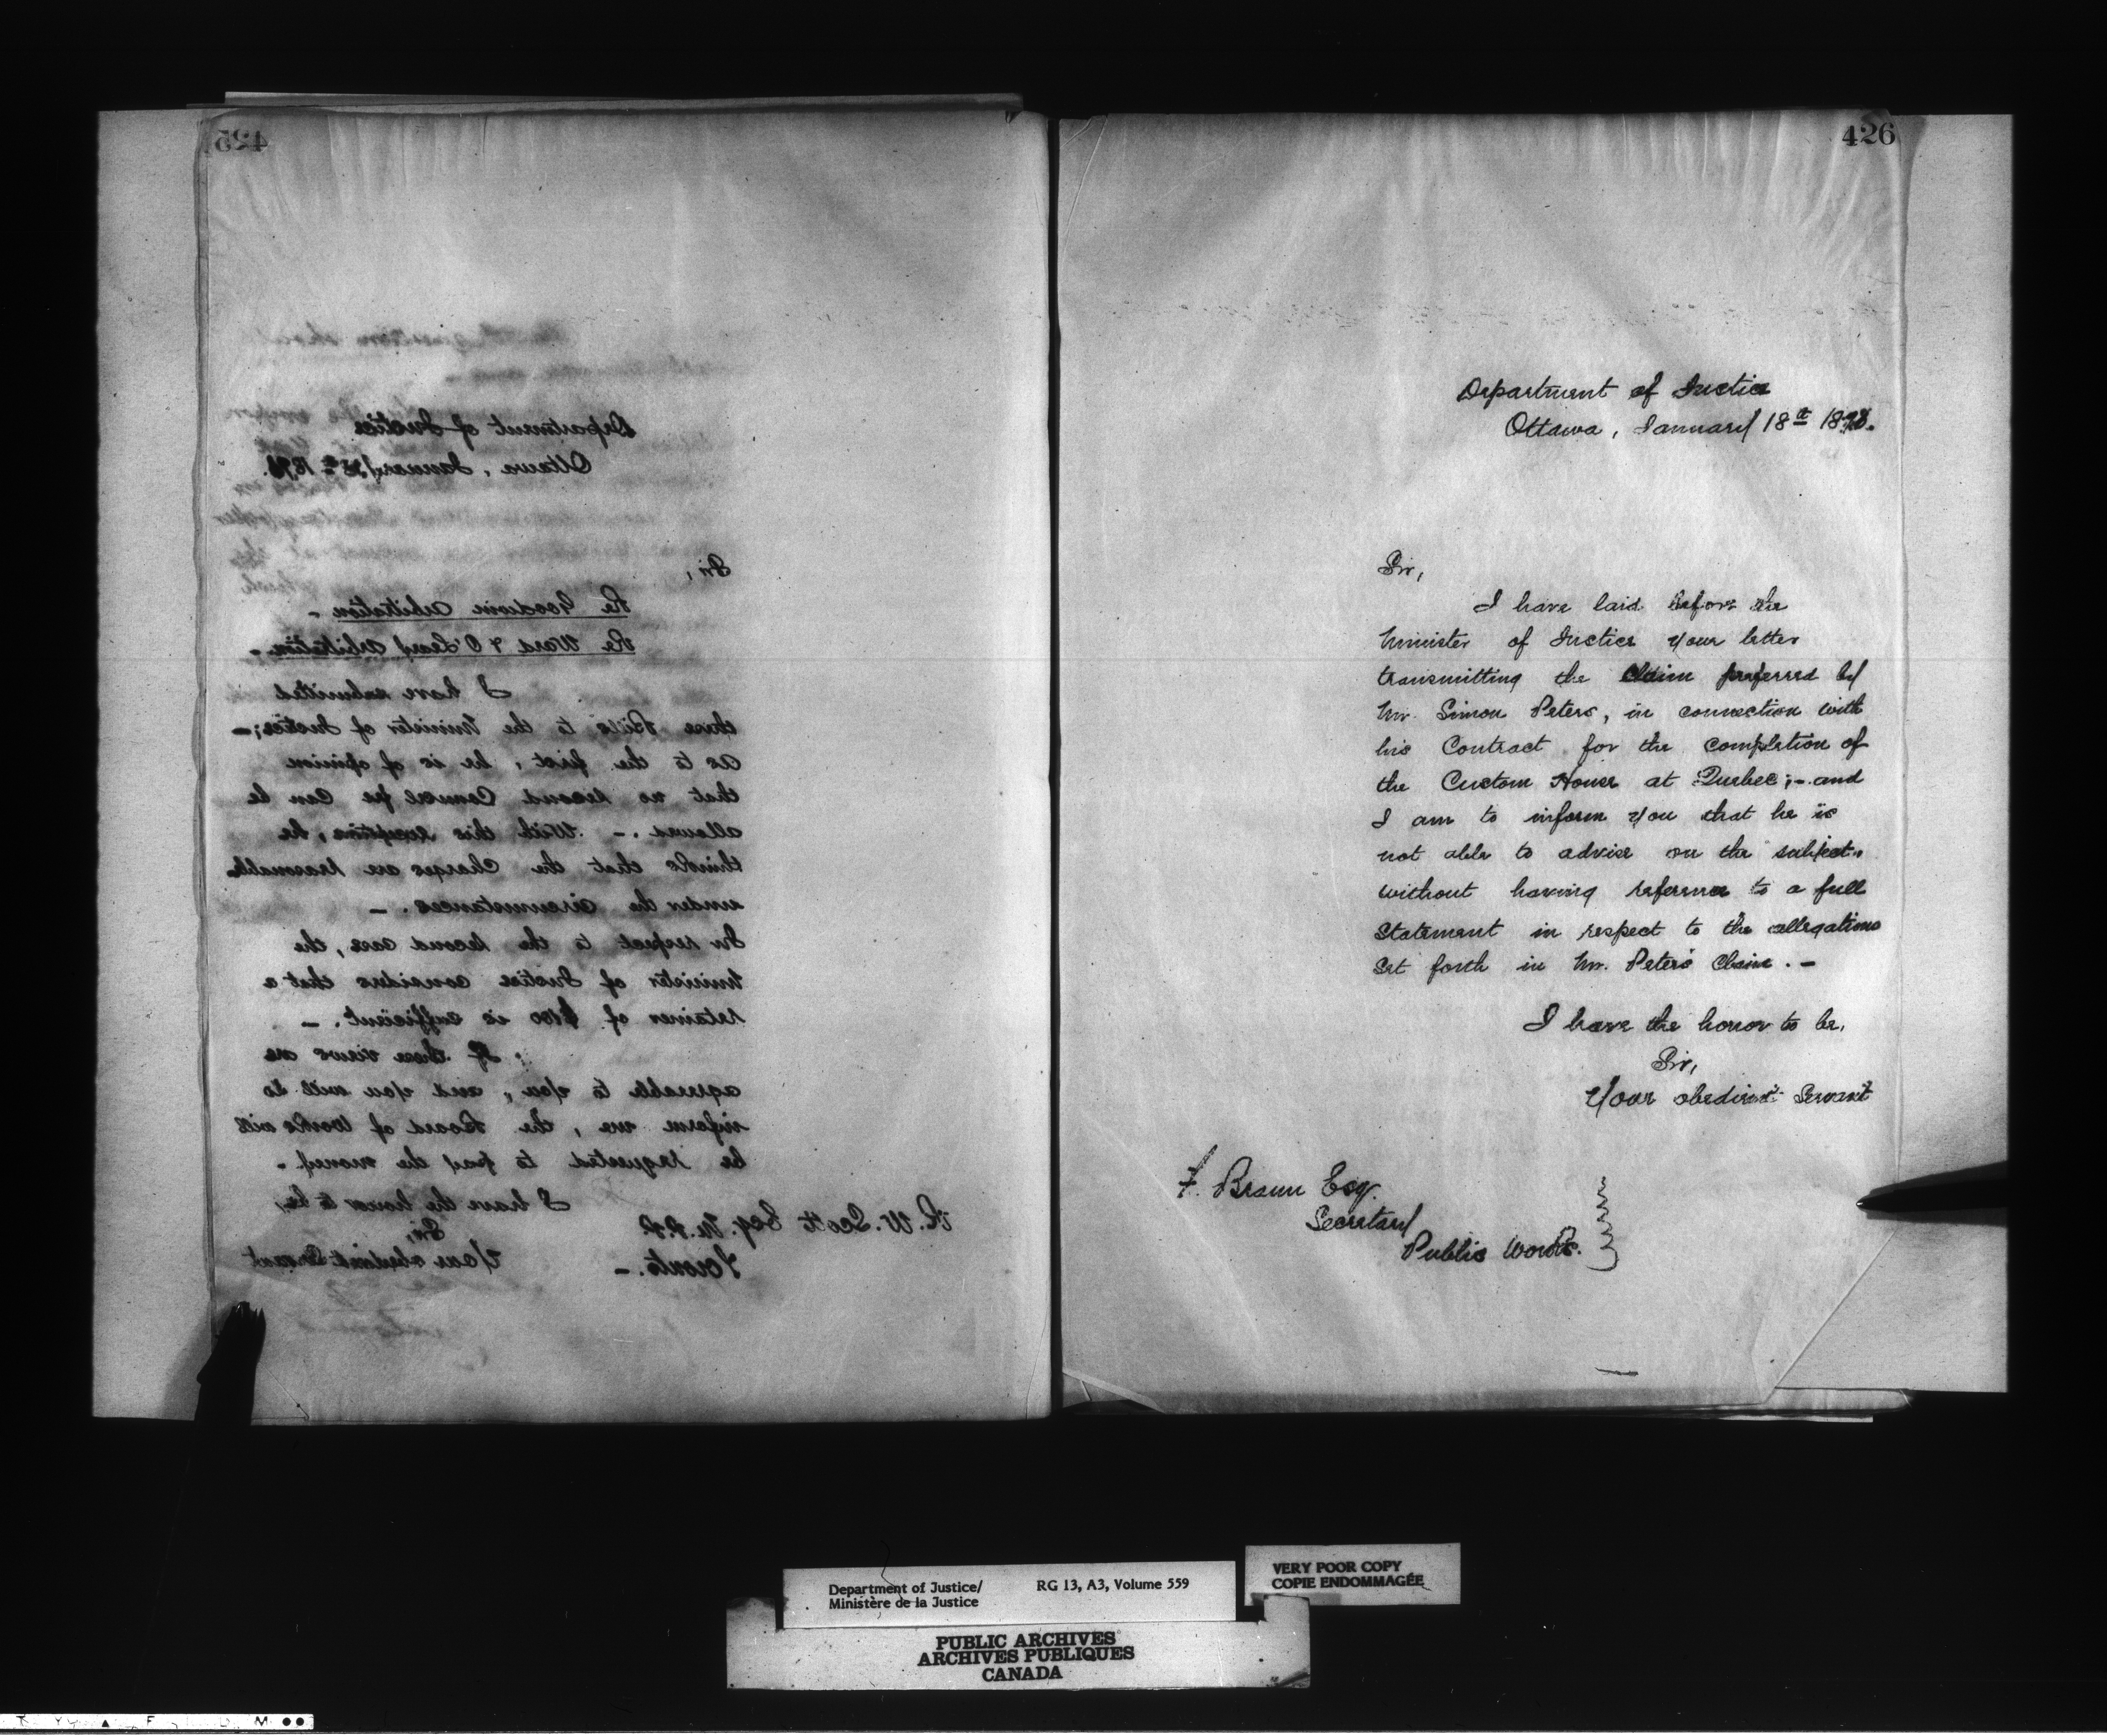 425
Department of Justice
Ottawa, January 1871.
Sir,
Re Goodwin Arbitration -
Re Ward & O'Leary Arbitration -
I have submitted
these Bills to the Minister of Justice; -
as to the first, he is of opinion
that no second Counsel fee can be
allowed. - With this exception, he,
thinks that the Charges are reasonable
under the circumstances. -
In respect to the second case, the
Minister of Justice considers that a
retainer of $100 is sufficient. -
If these views are
agreeable to you, and you will so
inform me, the Board of Works will
be requested to pay the money. -
I have the honor to be,
Sir,
Your obedient Servant
R. W. Scott Esq. M.P.P.
Toronto. -
426
Department of Justice
Ottawa, January 18th 1871.
Sir,
I have laid before the
Minister of Justice your letter
transmitting the Claim preferred by
Mr. Simon Peters, in connection with
his Contract for the completion of
the Custom House at Quebec; - and
I am to inform you that he is
not able to advise on the subject
without having reference to a full
Statement in respect to the allegations
set forth in Mr. Peters' Claim. -
I have the honor to be,
Sir,
Your obedient Servant
F. Braun Esq.
Secretary
Public Works.
Department of Justice/
Ministère de la Justice
RG 13, A3, Volume 559
VERY POOR COPY
COPIE ENDOMMAGÉE
PUBLIC ARCHIVES
ARCHIVES PUBLIQUES
CANADA